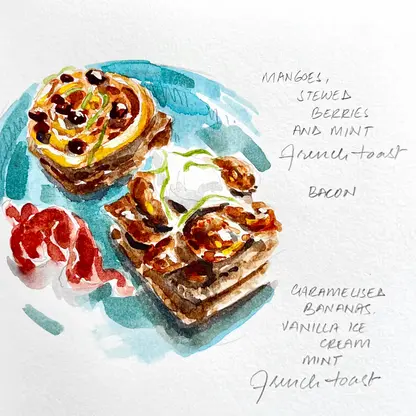 MANGOES,
STEWED
BERRIES
AND MINT
French toast
BACON
CARAMELISED
BANANAS.
VANILLA ICE
CREAM
MINT
French toast